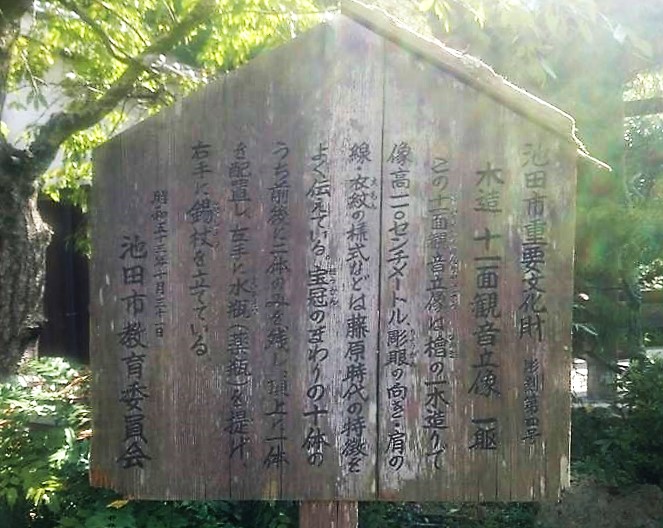 池田市重要文化財 彫刻第四号
木造 十一面観音立像 一躯
この十一面観音立像は檜の一木造りで
像高一一〇センチメートル、彫眼の向き・肩の
線・衣紋の様式などは藤原時代の特徴を
よく伝えている。宝冠のまわりの十体の
うち前後に二体のみを残し、頂上に一体
を配置し、左手に水瓶(薬瓶)を提げ、
右手に錫杖を立てている。
昭和五十三年十月三十一日
池田市教育委員会